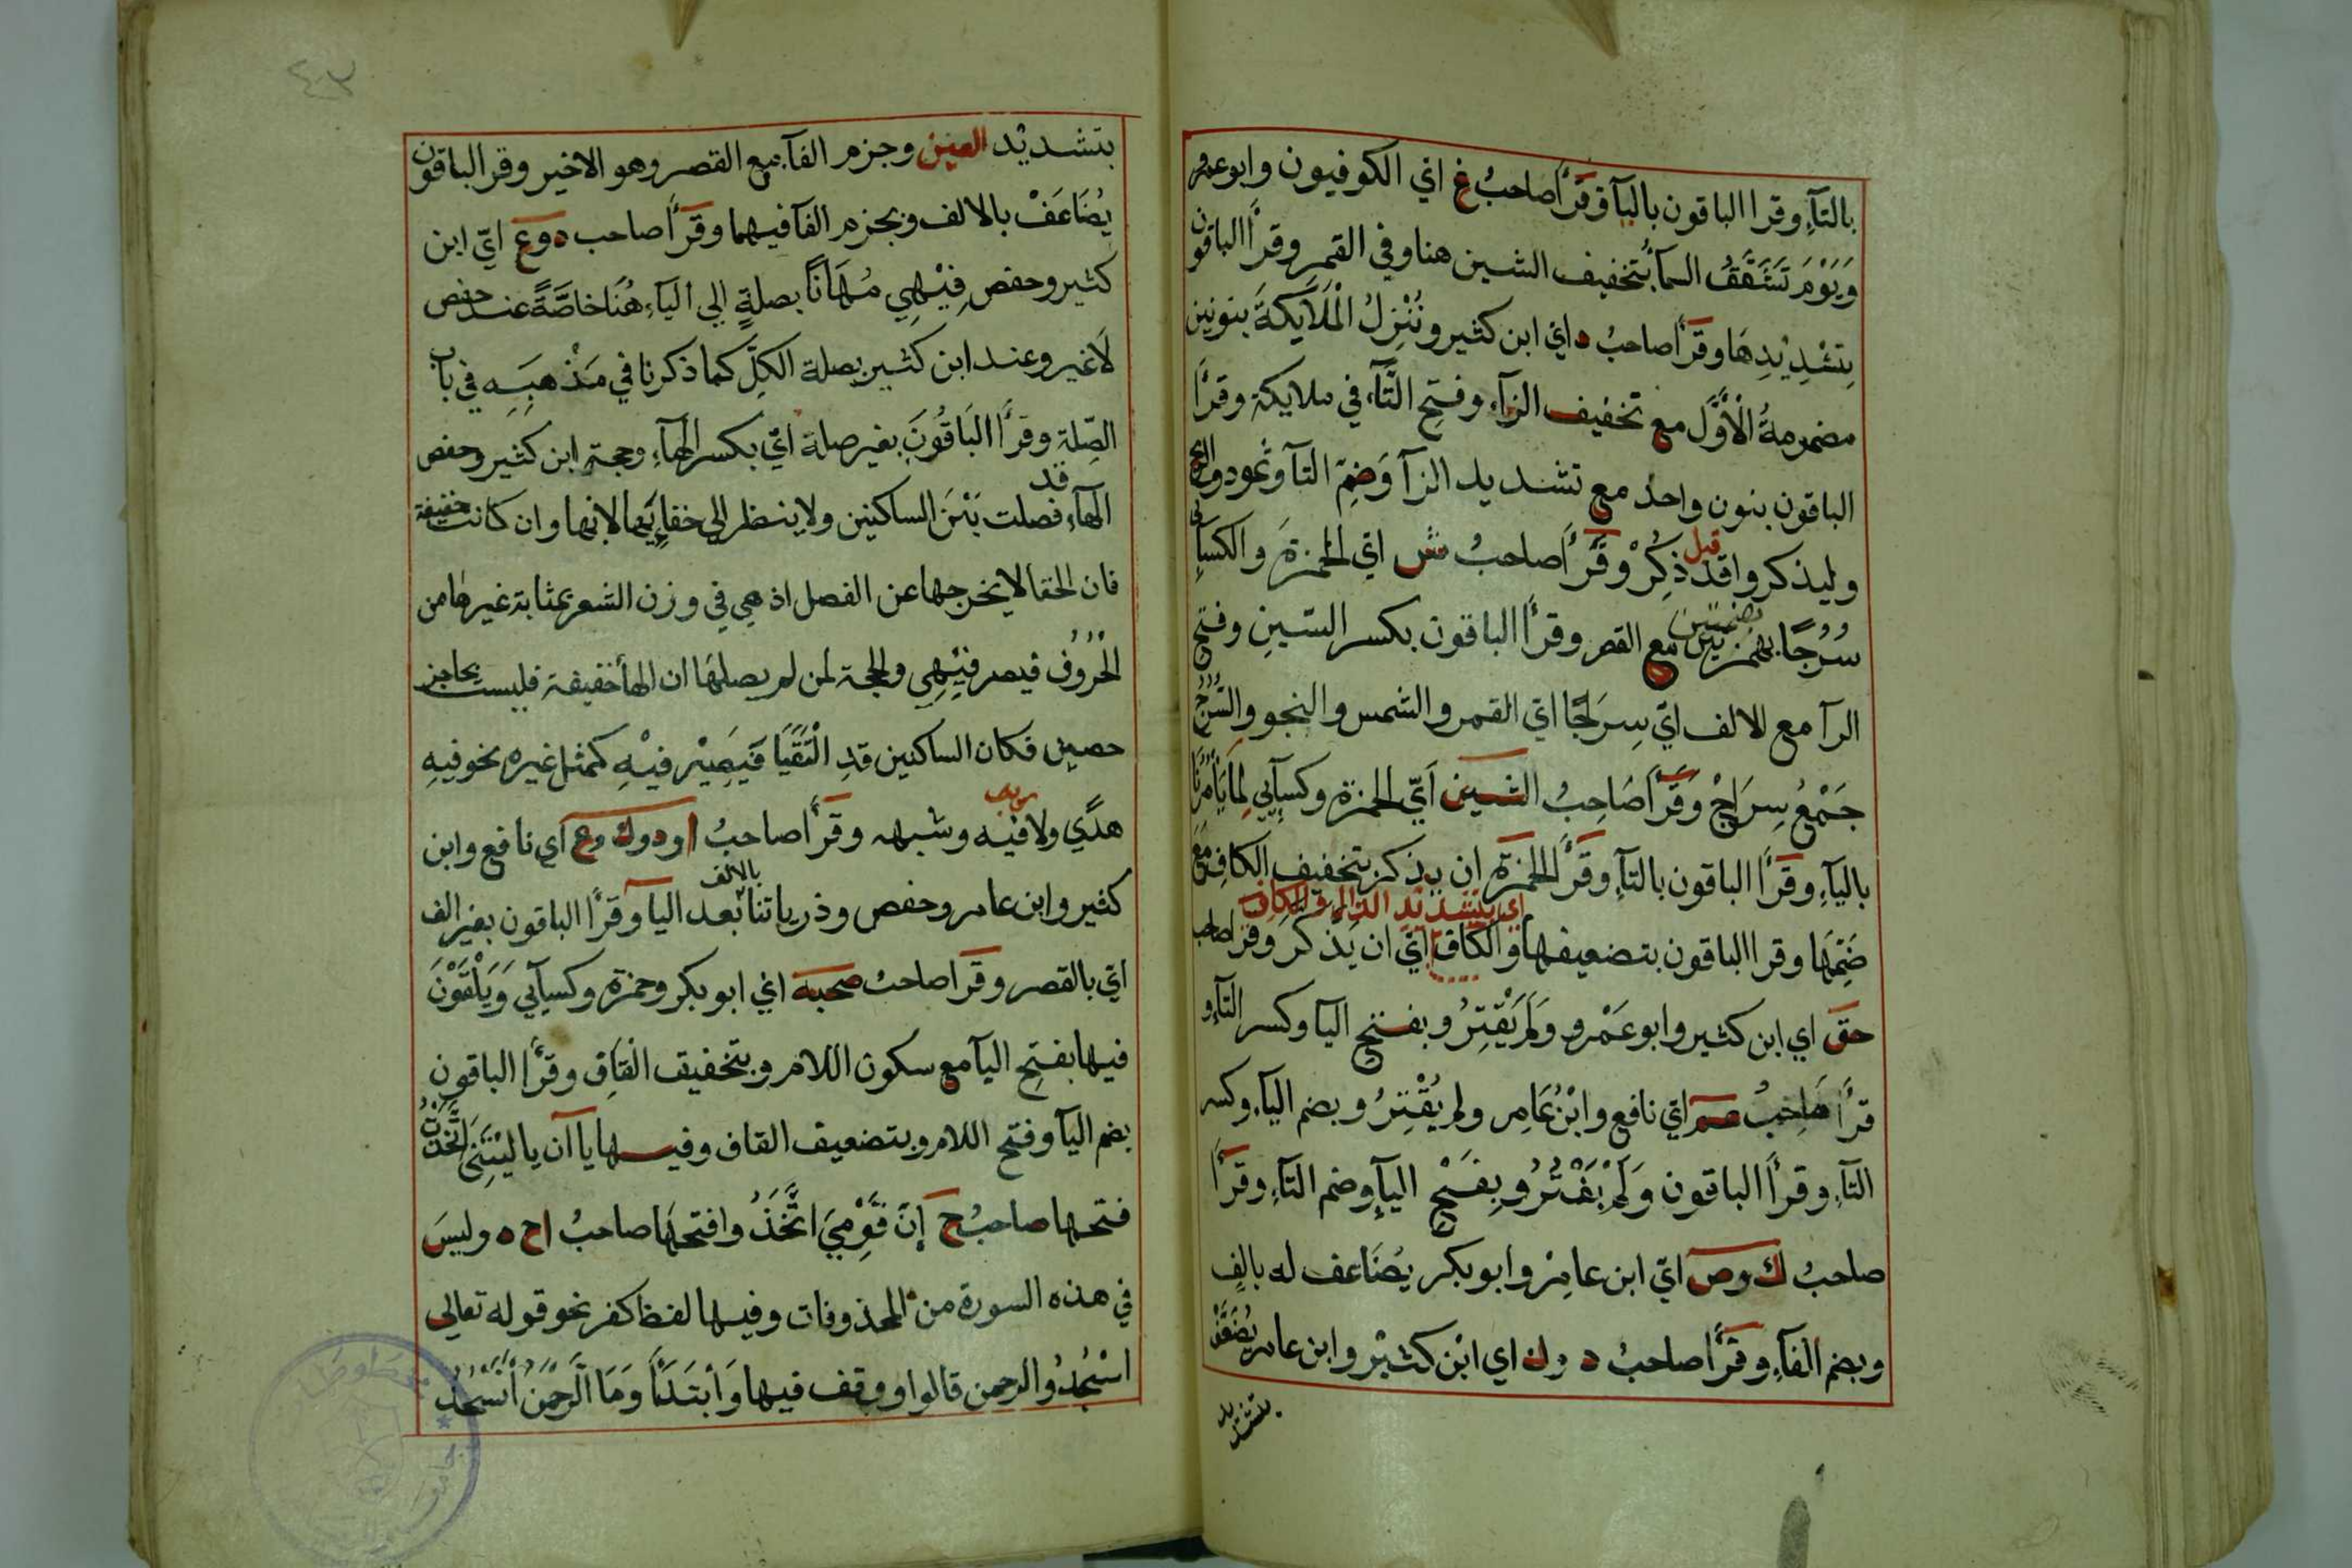 بالتآءِ وقرا الباقون باليآ وقَرَأَ صاحبُ غ اي الكوفيون وابو عمرو
وَيَوْمَ تَشَقَّقُ السمآءُ بتخفيف الشين هنا وفي القمر وقرأَ الباقون
بِتَشْدِيْدِهَا وقرأَ صاحبُ د اي ابن كثير ونُنْزِلُ الْمَلَايِكَةَ بنونين
مضمومةُ الْأَوَّل مع تخفيف الزآء وفتحِ التَّآء في ملايكة وقرأَ
الباقون بنون واحد مع تشديد الزآ وَضمِّ التآ وثمود
وليذكروا قد ذِكِرْ وقَرَأَ صاحبُ ش اي الحمزةَ والكسآئي
قبل
سُرُجًا بهمزتين مع القصر وقرأَ الباقون بكسر السّينِ وفتح
بضمتين
الرآ مع الالف ايّ سِرَاجًا اي القمر والشمس والنجو والسُرُجُ
جَمْعُ سِرَاجْ وَقَرَأَ صَاحِبُ الشين اَيّ الحمزة وكسآيي لِمَا يَأْمُرُنَا
باليآءِ وقرأَ الباقون بالتآءِ وقَرَأَ الحمزة ان يذكر بتخفيف الكافِ مَعَ
اي بتشديد الذال والكاف
ضَمِّهَا وقرا الباقون بتضعيفها والكاف ايّ ان يَذَّكَّرَ وقرا صاحب
حق اي ابن كثير وابو عَمْرو وَلَمْ يَقْتِرُ وبفتح اليآ وكسر التآءِ و
قرأَ صَاحِبُ عم ايّ نافع وابْنُ عَامِر ولم يُقْتِرُ وبضم اليآءِ وكسر
التآءِ وقرأَ الباقون وَلَمْ يَقْتُرُ وبِفَتْحِ اليآءِ وضم التآءِ وقرأَ
صاحبُ ك وص ايّ ابن عامِرْ وابو بكر يُضَاعف له بالِفٍ
وبضم الفآءِ وقَرَأَ صاحبُ د وك اي ابْن كثيْر وابن عامر يُضَعَّفْ
بتشديد
٤٣
بتشديْد العين وجزم الفآء مع القصر وهو الاخير وقرا الباقون
يُضَاعَفْ بالالف وبجزم الفآ فيهما وقرَأَ صاحب د وع ايّ ابن
كثير وحفص فِيْهِي مُهَانًا بصلةٍ الي اليآءِ هُنَا خاصَّةً عند حفص
لَا غير وعند ابن كثير بصلة الكلّ كما ذكرنا في مَذْهَبِهِ في باب
الصِّلة وقرأَ البَاقُونَ بغير صلة ايّ بكسر الهآءِ وحجة ابن كثير وحفص
الهآء فصلت بَيْنَ الساكنين ولا ينظر الي خفآئها لانها وان كانت خفيفة
قد
فان الخفا لا يخرجها عن الفصل اذ هي في وزن الشعر بمثابة غيرها من
الْحُرُوف فيصر فِيْهِي والحجة لمن لم يصلها ان الهآ خفيفة فليست بحاجز
حصين فكان الساكنين قدِ الْتَقَيَا فَيَصِيْر فيْهِ كمثل غيره نحو فيهِ
هدًي ولا فيْه وشبهه وقرَأَ صاحبُ ا ود وك وع اي نافع وابن
ريب
كثير وابن عامر وحفص وذرياتنا بعد اليآ وقرأَ الباقون بغير الف
بالالف
ايّ بالقصر وقرا صاحبُ صحبة اي ابو بكر وحمزة وكسآيي وَيَلْقَوْنَ
فيها بفتح اليآ مع سكون اللام وبتخفيف القافِ وقرأَ الباقون
بضم اليآ وفتح اللام وبتضعيف القاف وفيها يا آن يا ليْتَنِي اتَّخَذْتُ
فتحها صاحبُ ح إِنّ قَوْمِيَ اتَّخَذُ وافتحها صاحبُ ا ح ه وليسَ
في هذه السورة من المحذوفات وفيها لفظ كفر نحو قوله تعالي
اسْجُدُو الرحمن قالوا ووقف فيها وَابْتَدَأَ وَمَا الرَّحْمَنُ أَنَسْجُدُ